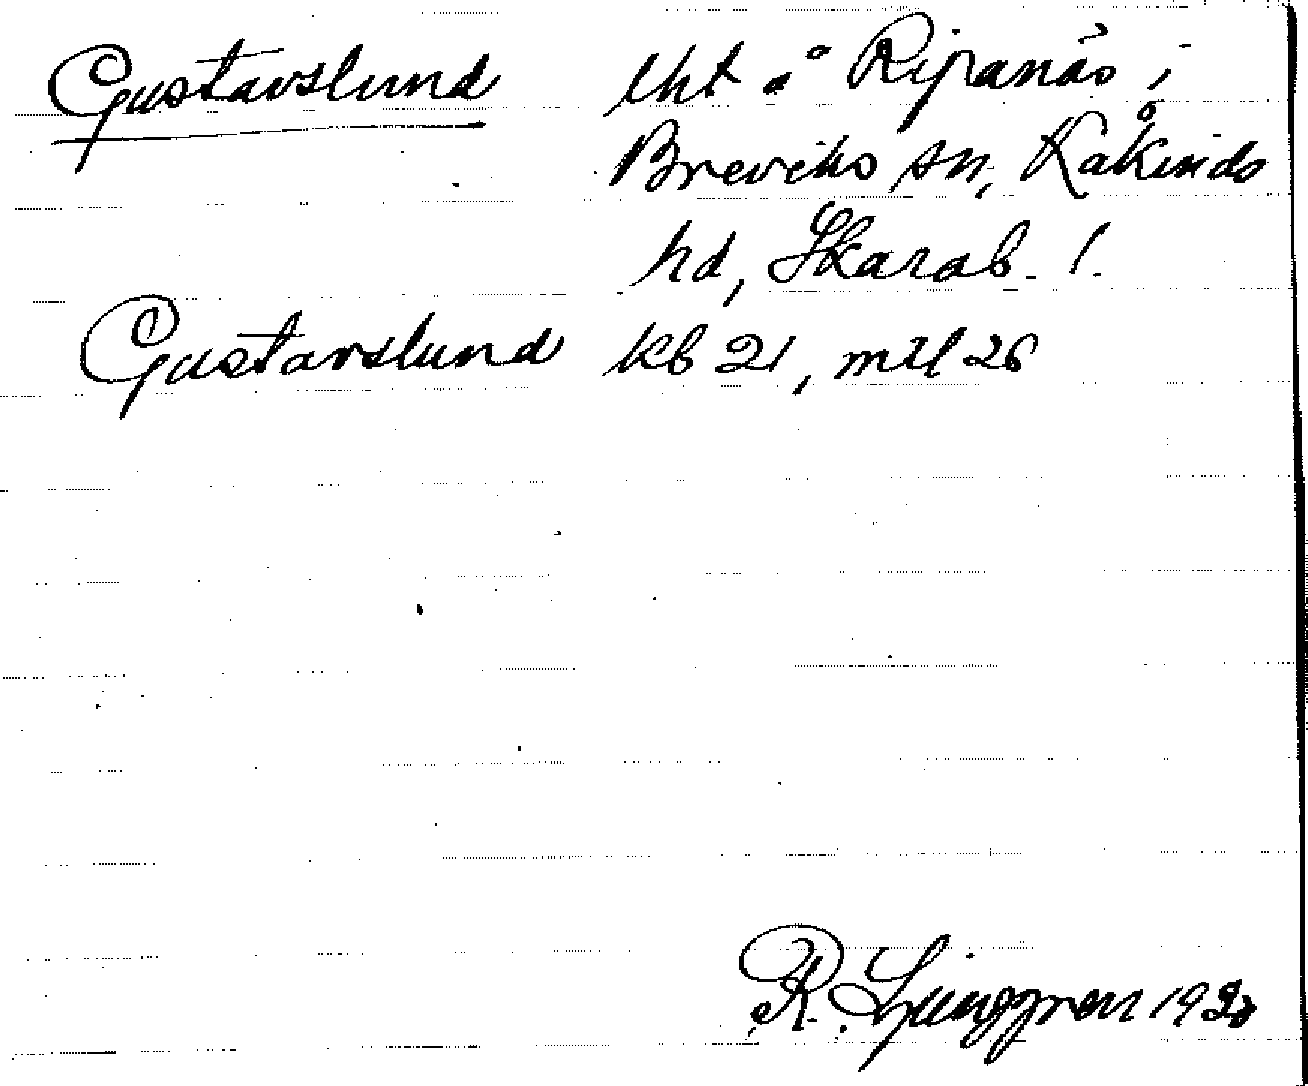 Gustavslund lht å Ripanäs i
Breviks sn, Kåkinds
hd, Skarab. l.
Gustavslund kb 21, mtl 26
R. Ljunggren